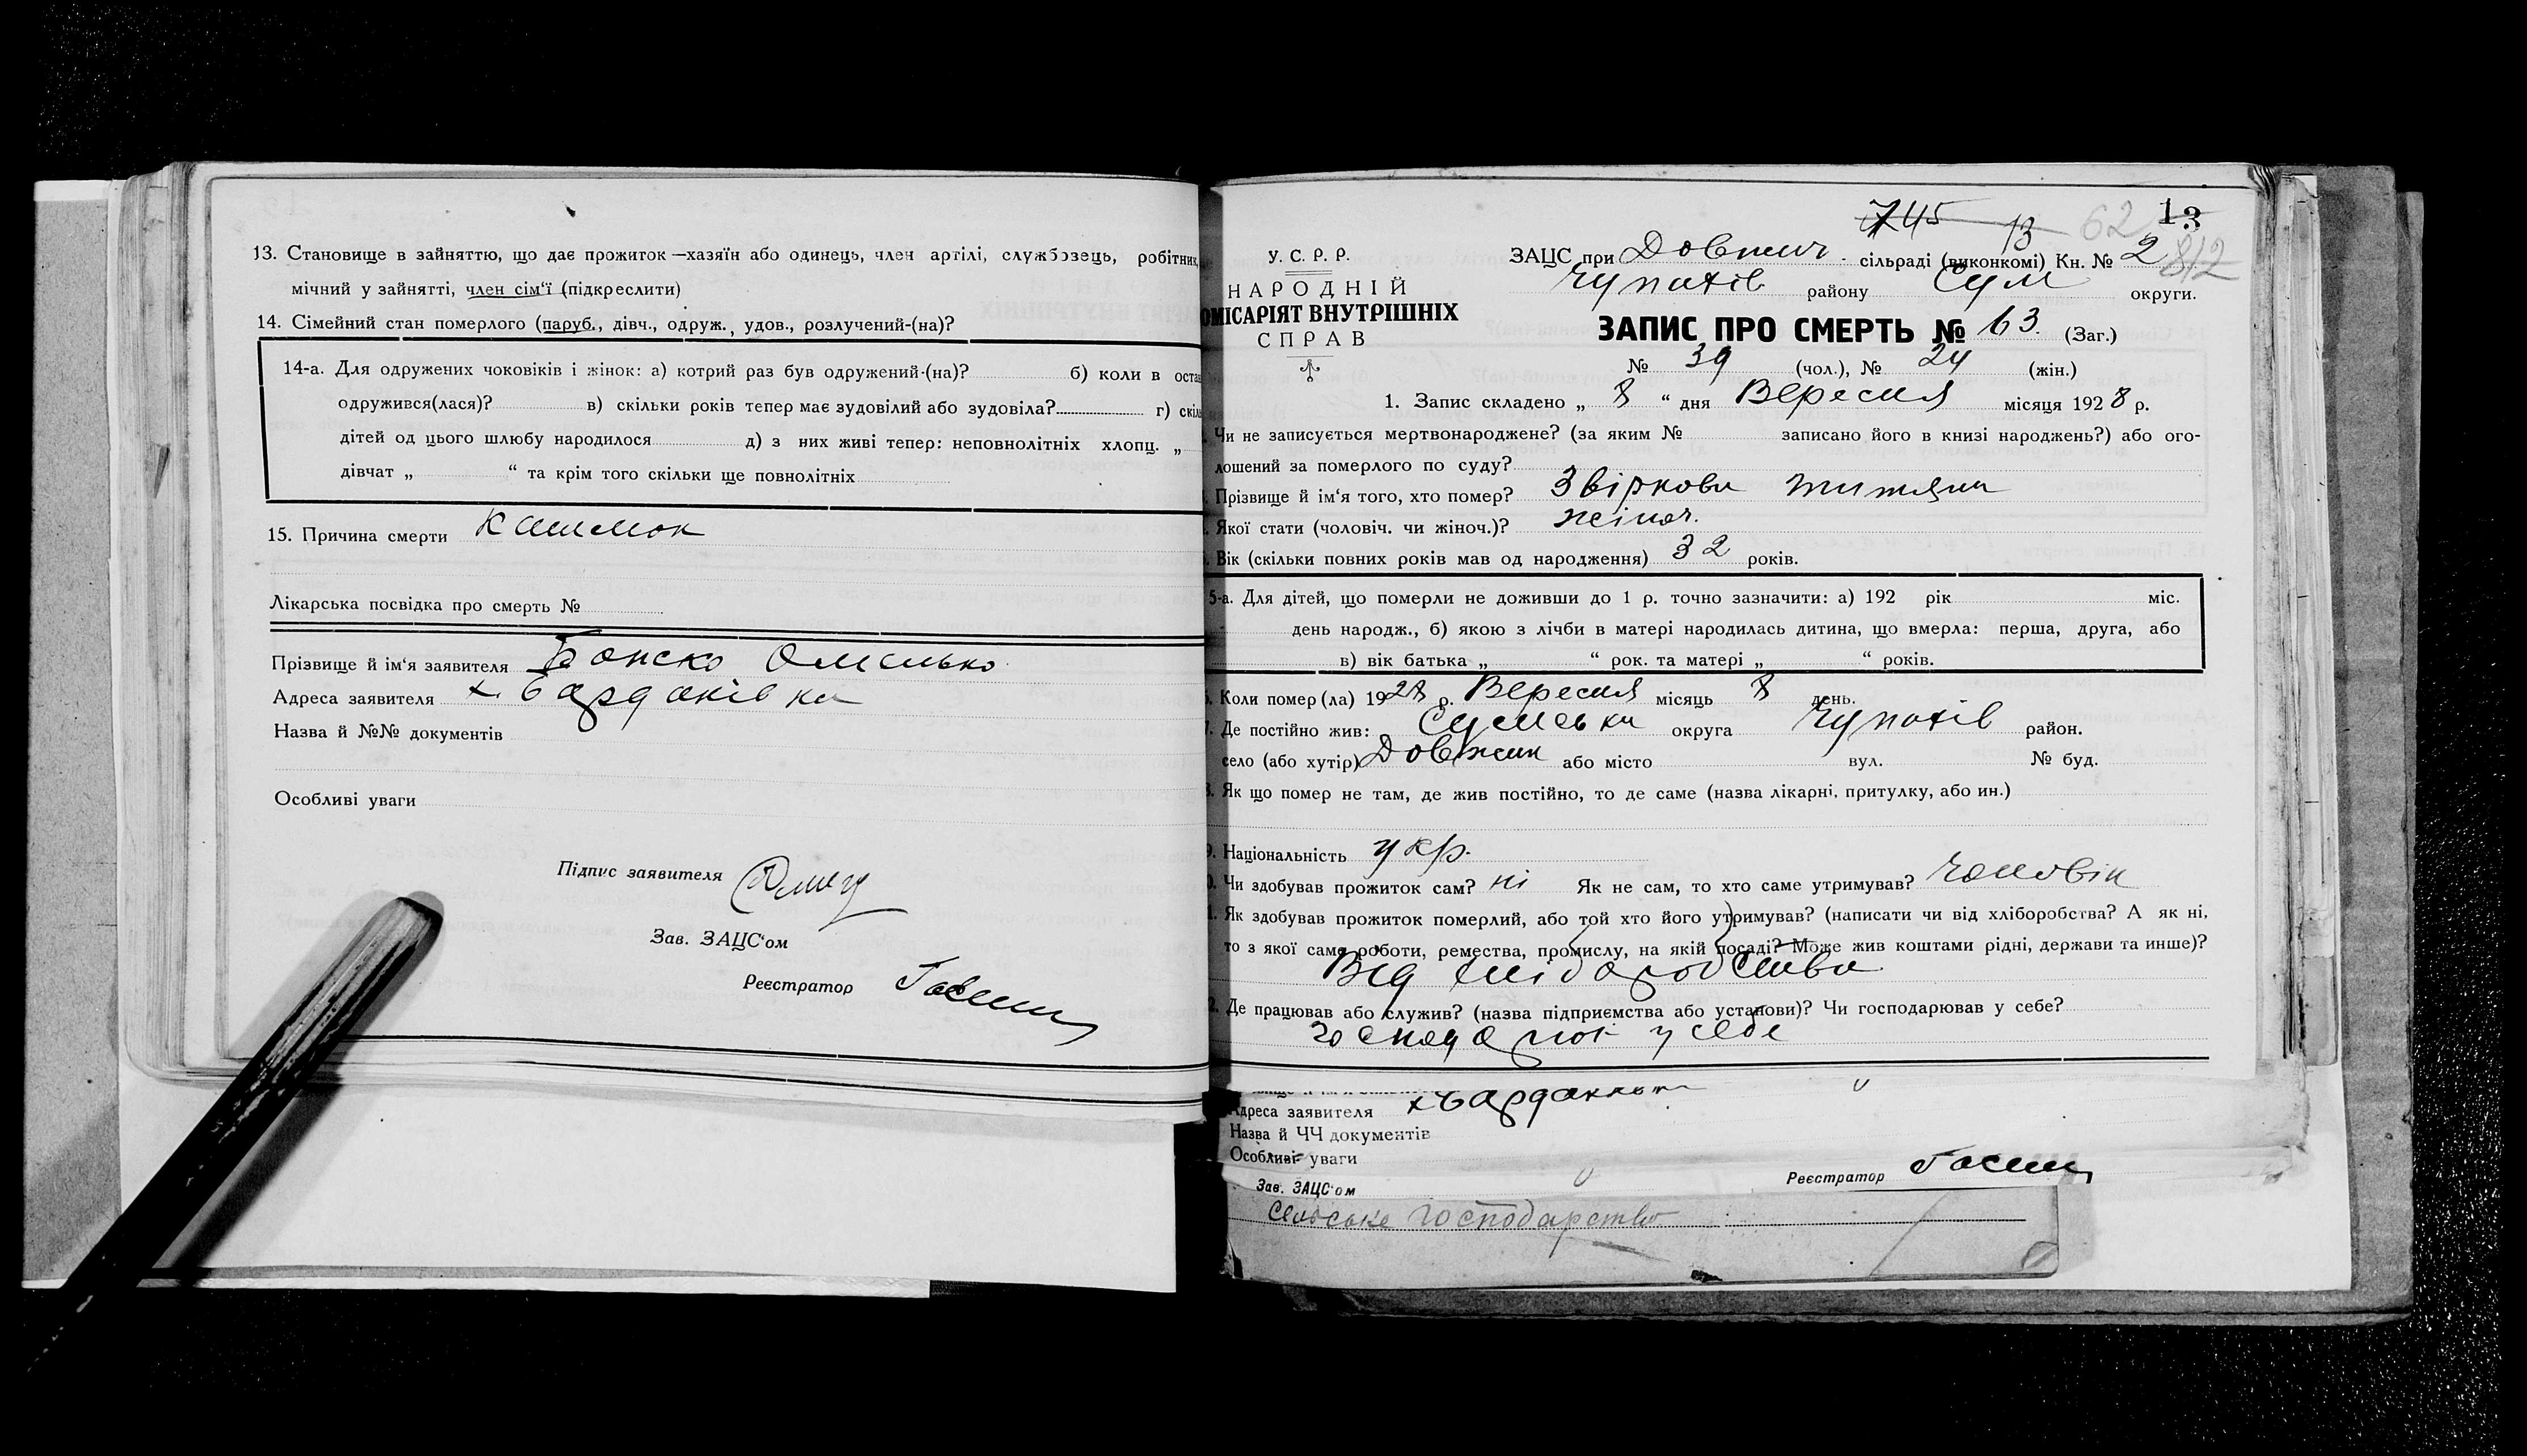 13. Становище в зайняттю, що дає прожиток —хазяїн або одинець, член артілі, службовець, робітник,
мічний у зайнятті, член сім'ї (підкреслити)
14. Сімейний стан померлого (паруб., дівч., одруж., удов., розлучений-(на)?
14-а. Для одружених чоковіків і жінок: а) котрий раз був одружений-(на)? б) коли в оста
одружився(лася)? в) скільки років тепер має зудовілий або зудовіла? г) скіль
дітей од цього шлюбу народилося д) з них живі тепер: неповнолітніх хлопц. „
дівчат „ “ та крім того скільки ще повнолітніх
15. Причина смерти Кашлюк
Лікарська посвідка про смерть №
Прізвище й ім'я заявителя Омелько
Адреса заявителя х. Бардаківка
Назва й №№ документів
Особливі уваги
Підпис заявителя
Зав. ЗАЦС'ом
Реєстратор
745 13 62 13
У. С. Р. Р.
НАРОДНІЙ
ОМІСАРІЯТ ВНУТРІШНІХ
СПРАВ
ЗАЦС при Довжич. сільраді (виконкомі) Кн. № 2 812
Чупахів району Сум округи.
ЗАПИС ПРО СМЕРТЬ № 63. (Заг.)
№ 39 (чол.), № 24 (жін.)
1. Запис складено „ 8 “ дня Вересня місяця 1928 р.
Чи не записується мертвонароджене? (за яким № записано його в книзі народжень?) або ого-
лошений за померлого по суду?
Прізвище й ім'я того, хто помер? Звіркова
Якої стати (чоловіч. чи жіноч.)? жіноч.
Вік (скільки повних років мав од народження) 32 років.
5-а. Для дітей, що померли не доживши до 1 р. точно зазначити: а) 192 рік міс.
день народж., б) якою з лічби в матері народилась дитина, що вмерла: перша, друга, або
в) вік батька „ “ рок. та матері „ “ років.
Коли помер(ла) 1928 р. Вересня місяць 8 день.
Де постійно жив: Сумська округа Чупахів район.
село (або хутір) Довжик або місто вул. № буд.
Як що помер не там, де жив постійно, то де саме (назва лікарні, притулку, або ин.)
9. Національність укр.
Чи здобував прожиток сам? ні Як не сам, то хто саме утримував? чоловік
Як здобував прожиток померлий, або той хто його утримував? (написати чи від хліборобства? А як ні,
то з якої саме роботи, ремества, промислу, на якій посаді? Може жив коштами рідні, держави та инше)?
Від хліборобства
Де працював або служив? (назва підприємства або установи)? Чи господарював у себе?
господарює у себе
Адреса заявителя
Назва й ЧЧ документів
Особливі уваги
Зав. ЗАЦС'ом
Реєстратор
Сельське господарство